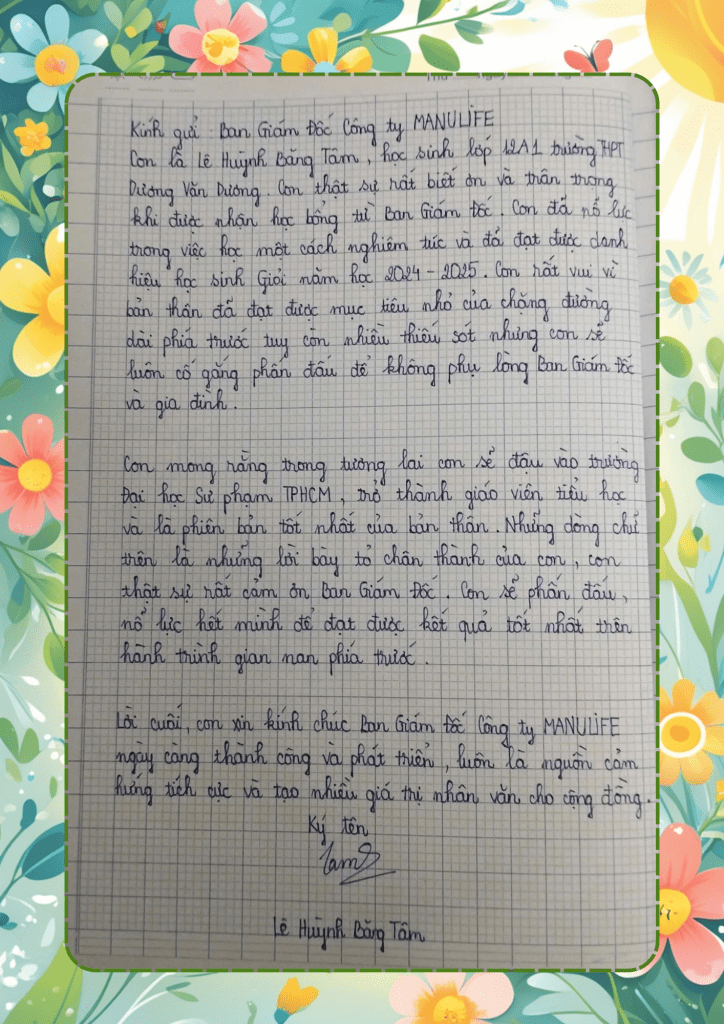 Kính gửi : Ban Giám Đốc Công ty MANULIFE
Con là Lê Huỳnh Băng Tâm , học sinh lớp 12A1 trường THPT
Dương Văn Dương . Con thật sự rất biết ơn và trân trọng
khi được nhận học bổng từ Ban Giám Đốc . Con đã nổ lực
trong việc học một cách nghiêm túc và đã đạt được danh
hiệu học sinh Giỏi năm học 2024 - 2025 . Con rất vui vì
bản thân đã đạt được mục tiêu nhỏ của chặng đường
dài phía trước tuy còn nhiều thiếu sót nhưng con sẽ
luôn cố gắng phấn đấu để không phụ lòng Ban Giám Đốc
và gia đình .
Con mong rằng trong tương lai con sẽ đậu vào trường
Đại học Sư phạm TPHCM , trở thành giáo viên tiểu học
và là phiên bản tốt nhất của bản thân . Những dòng chữ
trên là những lời bày tỏ chân thành của con , con
thật sự rất cảm ơn Ban Giám Đốc . Con sẽ phấn đấu ,
nổ lực hết mình để đạt được kết quả tốt nhất trên
hành trình gian nan phía trước .
Lời cuối , con xin kính chúc Ban Giám Đốc Công ty MANULIFE
ngày càng thành công và phát triển , luôn là nguồn cảm
hứng tích cực và tạo nhiều giá trị nhân văn cho cộng đồng .
Ký tên
Tam
Lê Huỳnh Băng Tâm